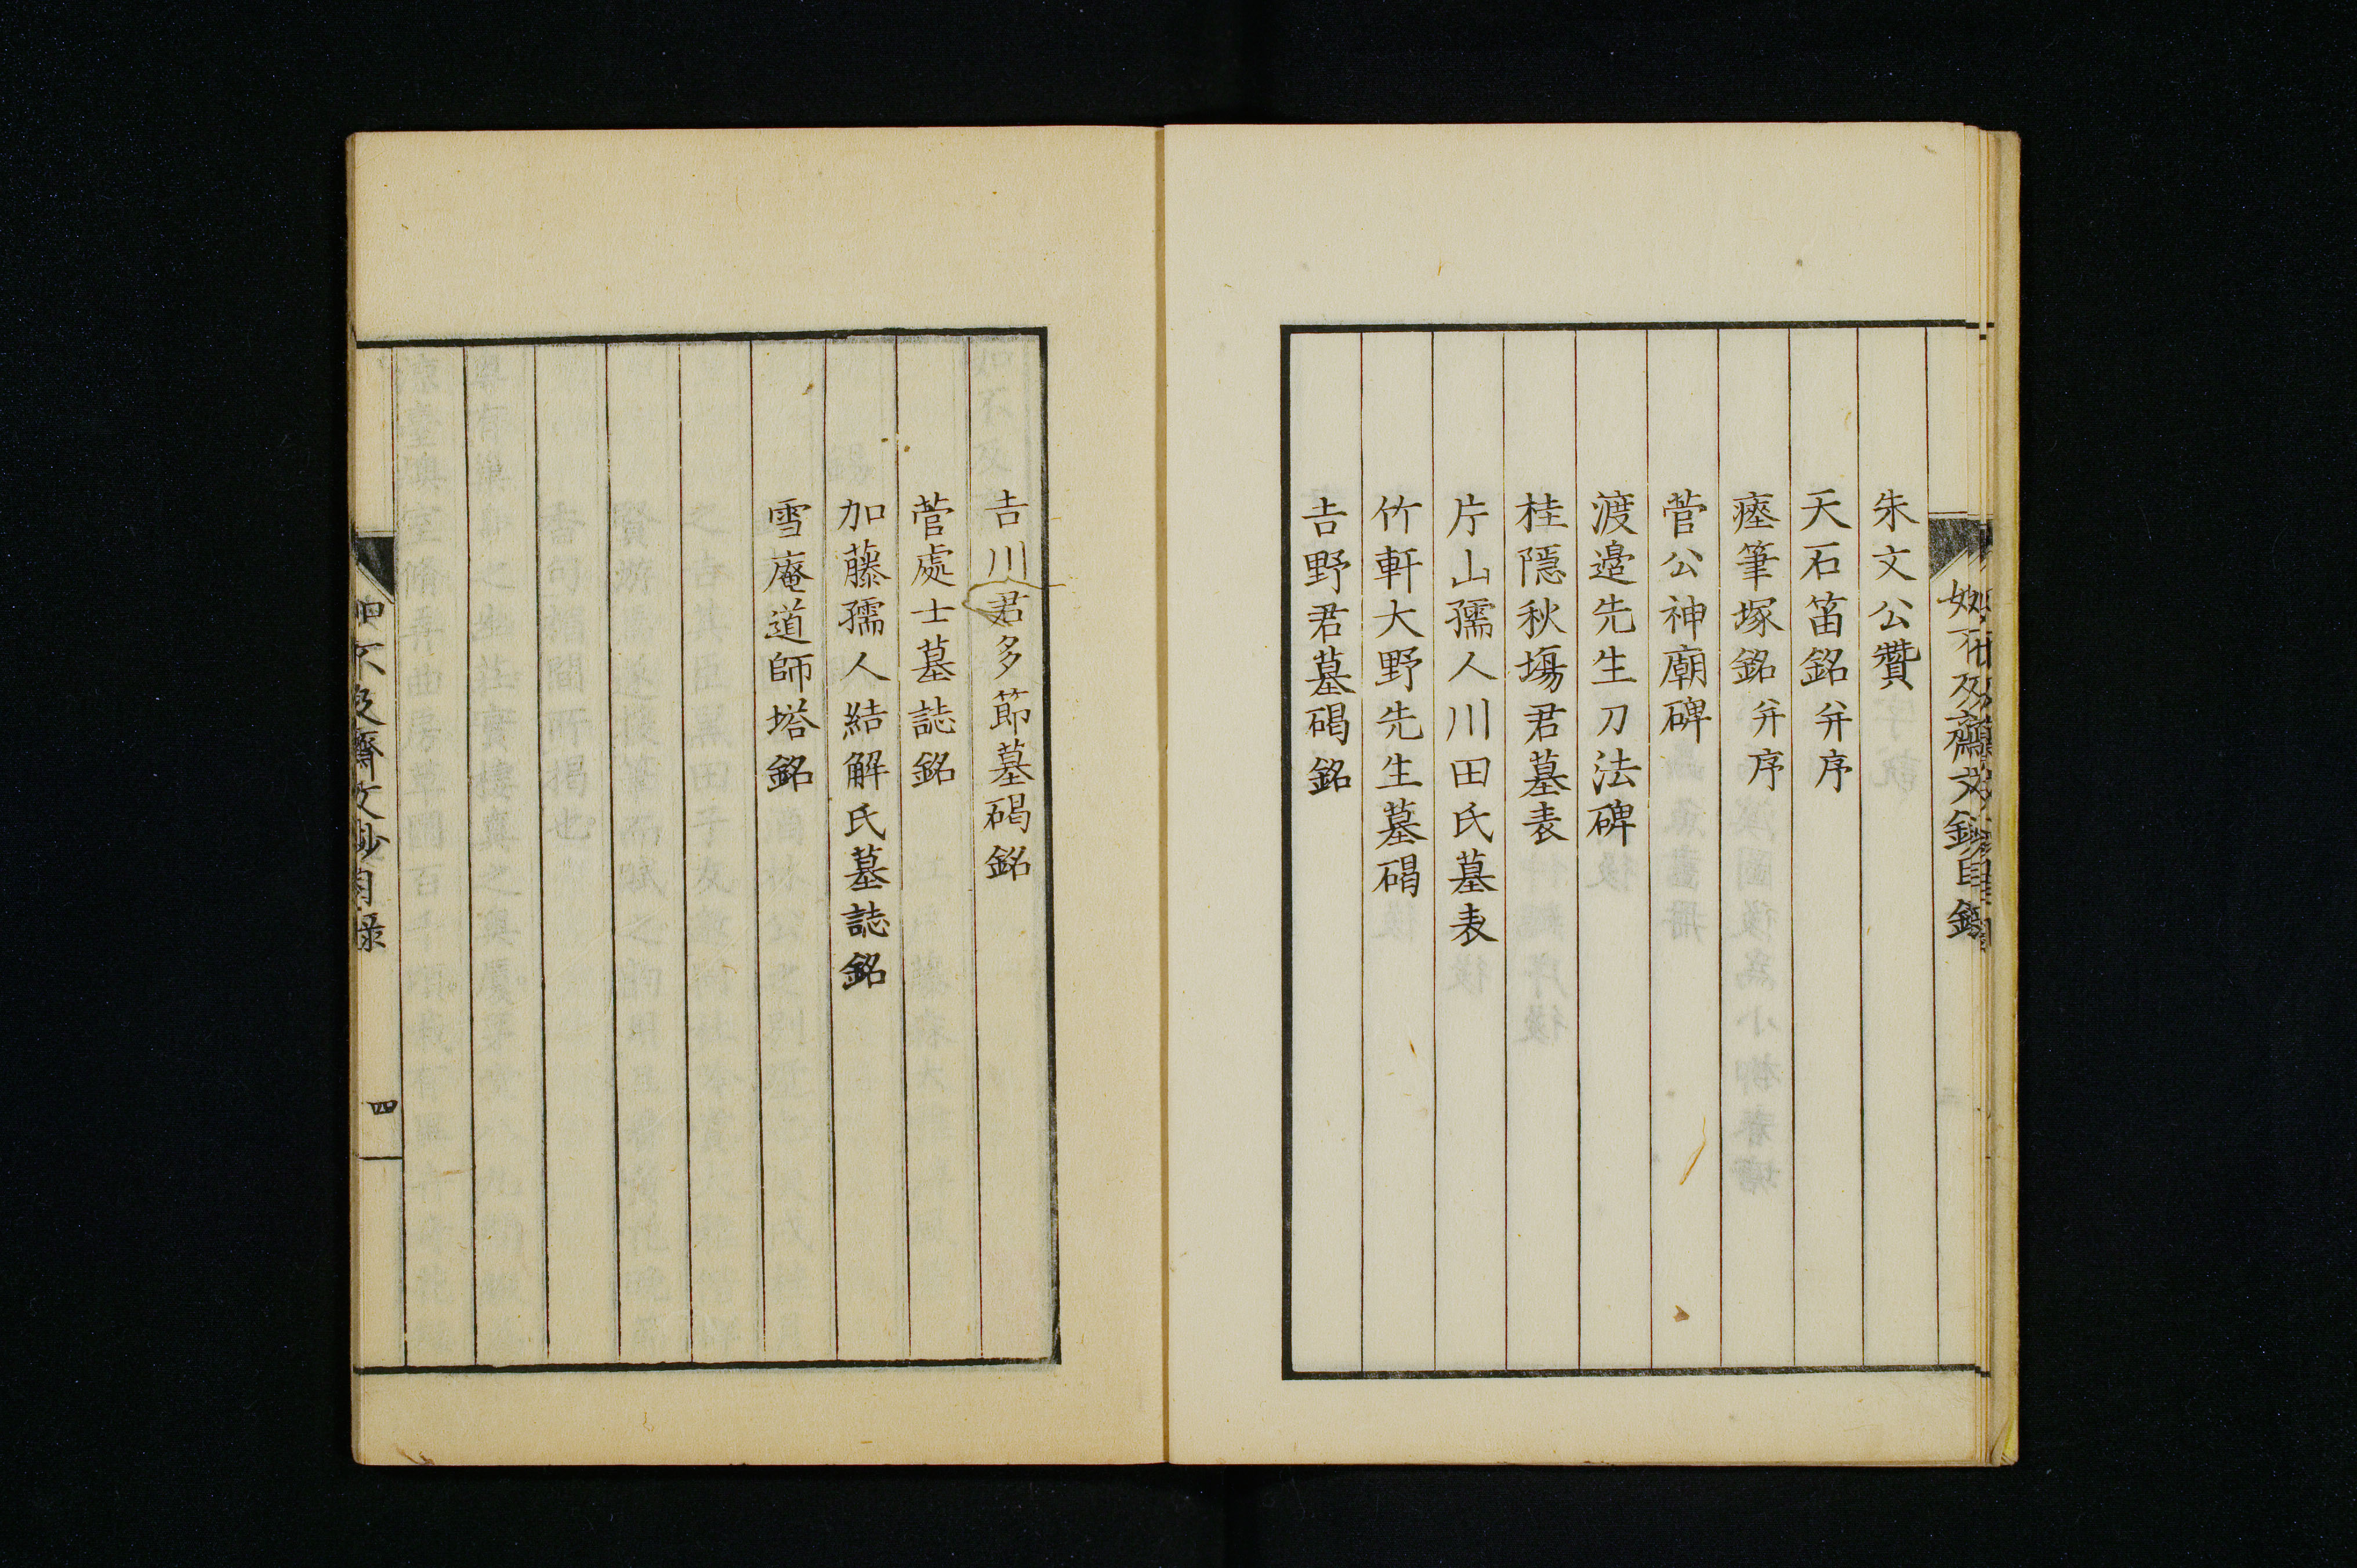 朱文公贊
天石笛銘并序
瘞筆塚銘并序
菅公神廟碑
渡邉先生刀法碑
桂隱秋塲君墓表
片山孺人川田氏墓表
竹軒大野先生墓碣
吉野君墓碣銘
吉川君多節墓碣銘
菅處士墓誌銘
加藤孺人結解氏墓誌銘
雪庵道師塔銘
如不及齋文鈔目錄
四